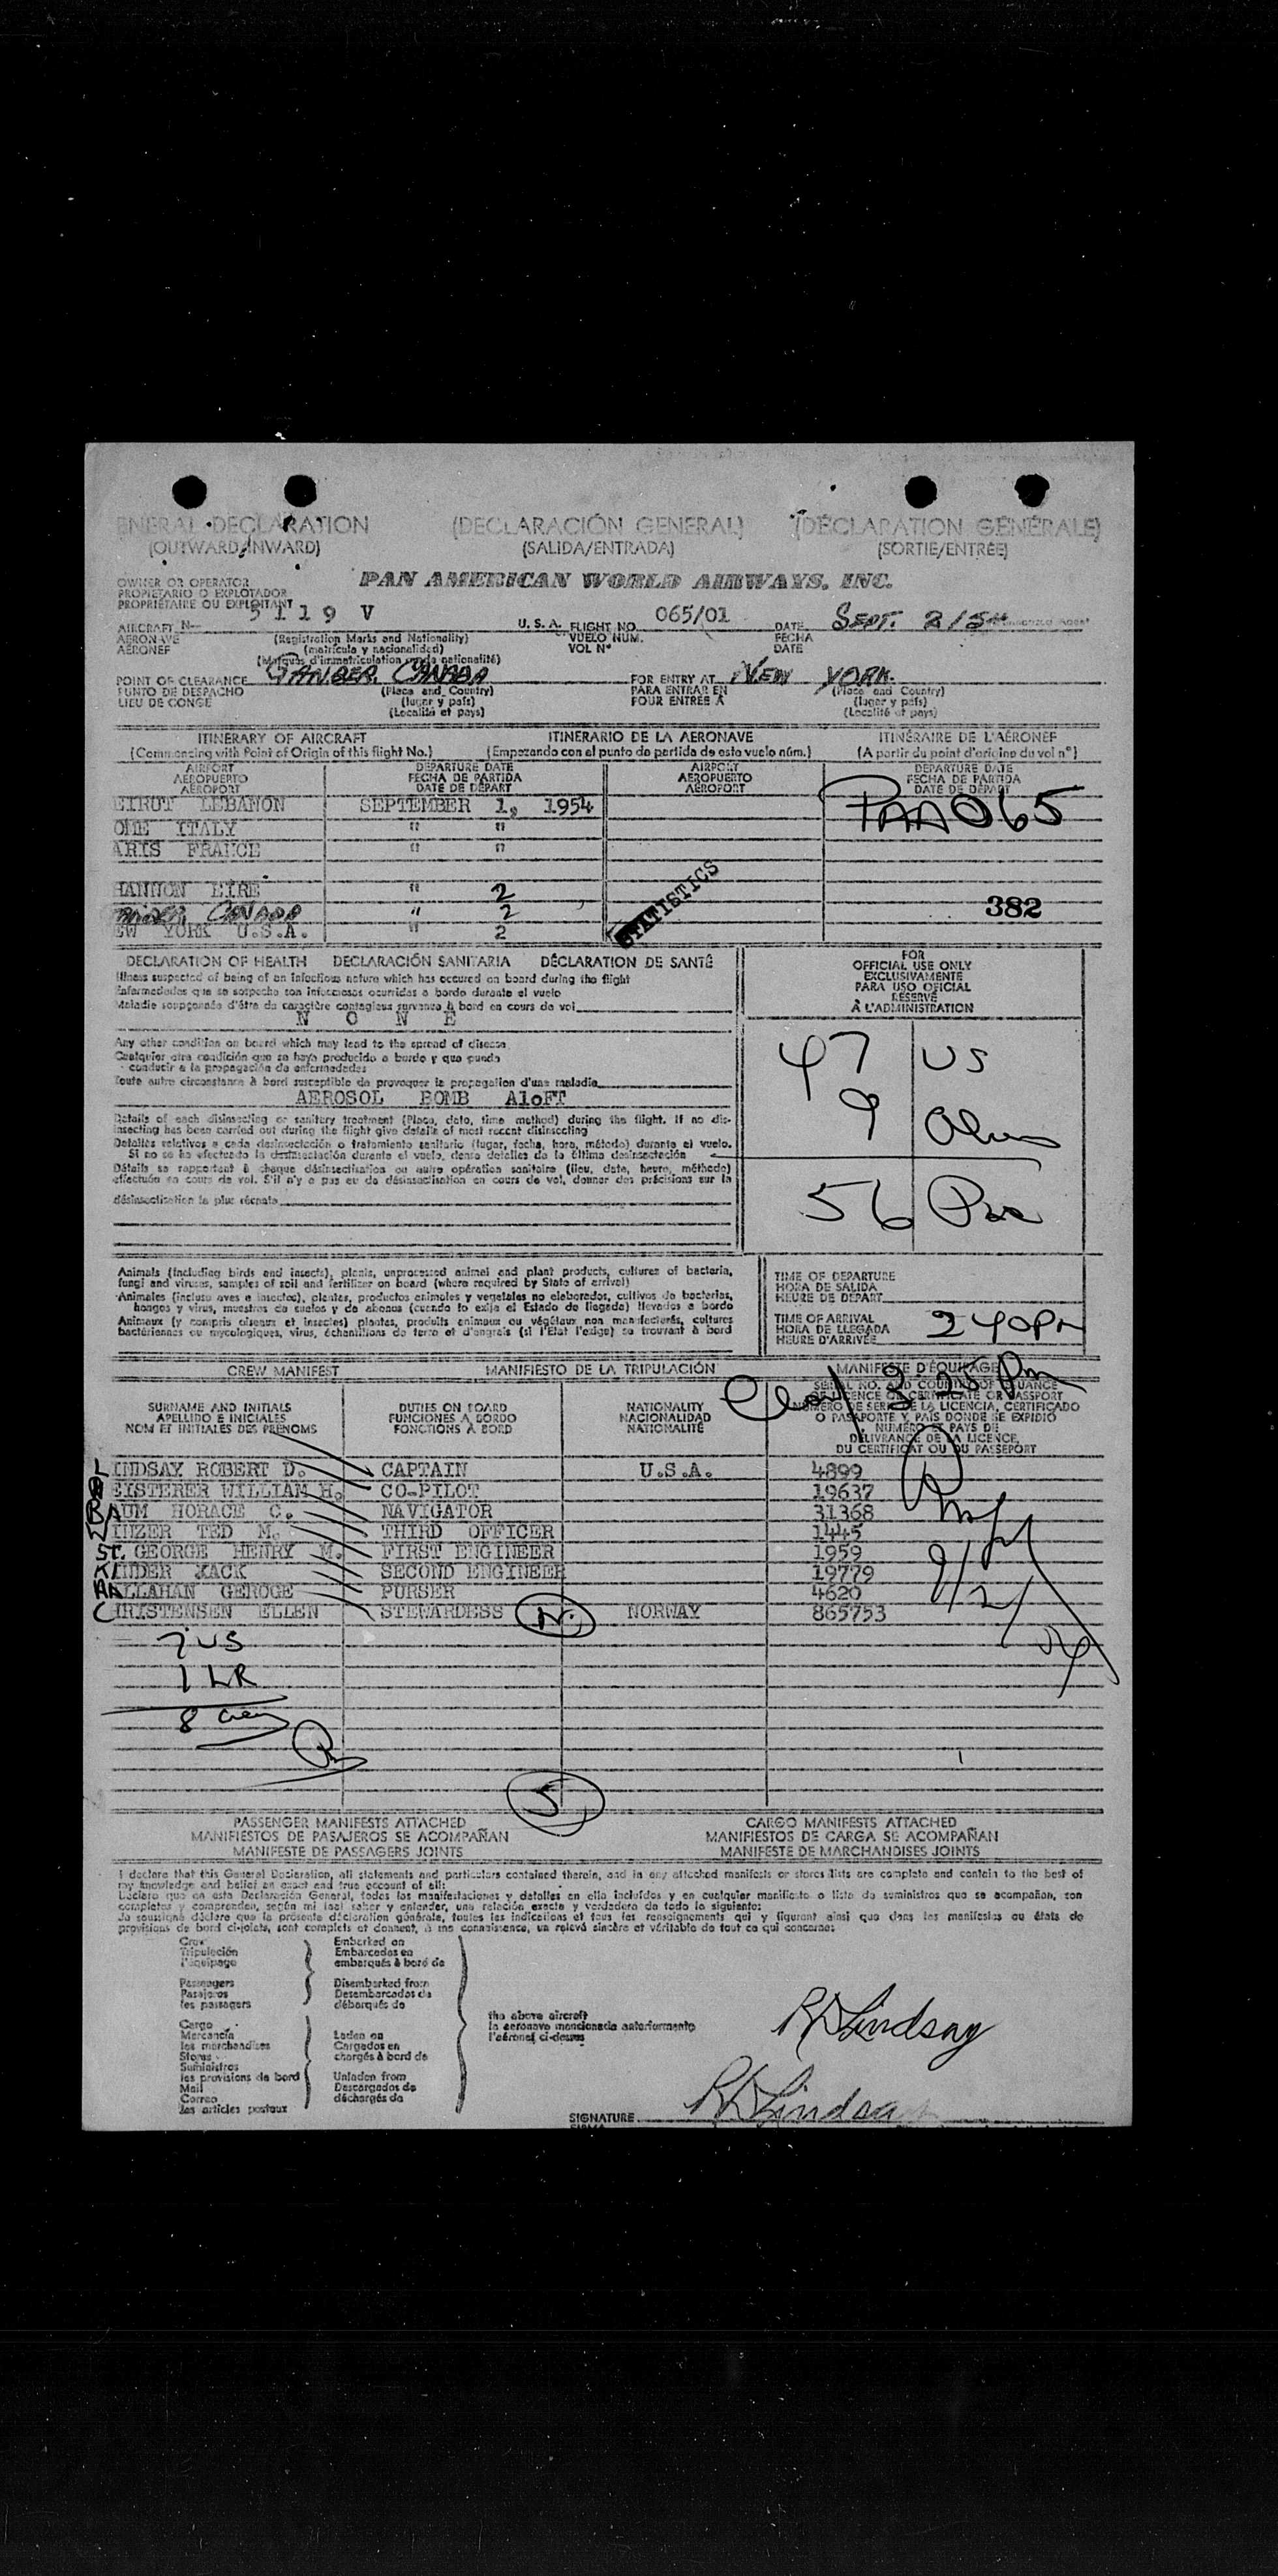 ENERAL DECLARATION (DECLARACIÓN GENERAL) (DÉCLARATION GÉNÉRALE)
(OUTWARD/INWARD) (SALIDA/ENTRADA) (SORTIE/ENTRÉE)
OWNER OR OPERATOR
PROPIETARIO O EXPLOTADOR
PROPRIÉTAIRE OU EXPLOITANT
PAN AMERICAN WORLD AIRWAYS, INC.
AIRCRAFT N-- 5119 V U.S.A. FLIGHT NO. 065/01 DATE SEPT. 2/54
AERONAVE (Registration Marks and Nationality) VUELO NUM. FECHA
AÉRONEF (matrícula y nacionalidad) VOL Nº DATE
(Marques d'immatriculation et de nationalité)
POINT OF CLEARANCE GANDER, CANADA FOR ENTRY AT NEW YORK
PUNTO DE DESPACHO (Place and Country) PARA ENTRAR EN (Place and Country)
LIEU DE CONGÉ (lugar y país) POUR ENTRÉE À (lugar y país)
(Localité et pays) (Localité et pays)
ITINERARY OF AIRCRAFT ITINERARIO DE LA AERONAVE ITINÉRAIRE DE L'AÉRONEF
(Commencing with Point of Origin of this flight No.) (Empezando con el punto de partida de este vuelo núm.) (A partir du point d'origine du vol nº)
AIRPORT DEPARTURE DATE AIRPORT DEPARTURE DATE
AEROPUERTO FECHA DE PARTIDA AEROPUERTO FECHA DE PARTIDA
AÉROPORT DATE DE DÉPART AÉROPORT DATE DE DÉPART
EIRUT LEBANON SEPTEMBER 1, 1954 PAA 065
OME ITALY " "
ARIS FRANCE " "
HANNON EIRE " 2
GANDER, CANADA " 2 382
EW YORK U.S.A. " 2
STATISTICS
DECLARATION OF HEALTH DECLARACIÓN SANITARIA DÉCLARATION DE SANTÉ
Illness suspected of being of an infectious nature which has occured on board during the flight
Enfermedades que se sospecha son infecciosas ocurridas a bordo durante el vuelo
Maladie soupçonnée d'être de caractère contagieux survenue à bord en cours de vol
N O N E
Any other condition on board which may lead to the spread of disease
Cualquier otra condición que se haya producido a bordo y que pueda
conducir a la propagación de enfermedades
Toute autre circonstance à bord susceptible de provoquer la propagation d'une maladie
AEROSOL BOMB AloFT
Details of each disinsecting or sanitary treatment (Place, date, time method) during the flight. If no dis-
insecting has been carried out during the flight give details of most recent disinsecting
Detalles relativos a cada desinsectación o tratamiento sanitario (lugar, fecha, hora, método) durante el vuelo.
Si no se ha efectuado la desinsectación durante el vuelo, dense detalles de la última desinsectación
Détails se rapportant à chaque désinsectisation ou autre opération sanitaire (lieu, date, heure, méthode)
effectuée en cours de vol. S'il n'y a pas eu de désinsectisation en cours de vol, donner des précisions sur la
désinsectisation la plus récente
FOR
OFFICIAL USE ONLY
EXCLUSIVAMENTE
PARA USO OFICIAL
RÉSERVÉ
À L'ADMINISTRATION
47 US
9
56
Animals (including birds and insects), plants, unprocessed animal and plant products, cultures of bacteria,
fungi and viruses, samples of soil and fertilizer on board (where required by State of arrival)
Animales (incluso aves e insectos), plantas, productos animales y vegetales no elaborados, cultivos de bacterias,
hongos y virus, muestras de suelos y de abonos (cuando lo exija el Estado de llegada) llevados a bordo
Animaux (y compris oiseaux et insectes) plantes, produits animaux ou végétaux non manufacturés, cultures
bactériennes ou mycologiques, virus, échantillons de terre et d'engrais (si l'Etat l'exige) se trouvant à bord
TIME OF DEPARTURE
HORA DE SALIDA
HEURE DE DÉPART
TIME OF ARRIVAL
HORA DE LLEGADA 240PM
HEURE D'ARRIVÉE
CREW MANIFEST MANIFIESTO DE LA TRIPULACIÓN MANIFESTE D'ÉQUIPAGE
3 25 Pm
SURNAME AND INITIALS DUTIES ON BOARD NATIONALITY
APELLIDO E INICIALES FUNCIONES A BORDO NACIONALIDAD
NOM ET INITIALES DES PRÉNOMS FONCTIONS À BORD NATIONALITÉ
SERIAL NO. AND COUNTRY OF ISSUANCE
OF LICENCE OR CERTIFICATE OR PASSPORT
NÚMERO DE SERIE DE LA LICENCIA, CERTIFICADO
O PASAPORTE Y PAÍS DONDE SE EXPIDIÓ
NUMÉRO ET PAYS DE
DÉLIVRANCE DE LA LICENCE,
DU CERTIFICAT OU DU PASSEPORT
LINDSAY ROBERT D. CAPTAIN U.S.A. 4899
EISTERER WILLIAM H. CO-PILOT 19637
BAUM HORACE C. NAVIGATOR 31368
WINZER TED M. THIRD OFFICER 1445
ST. GEORGE HENRY M. FIRST ENGINEER 1959
KINDER XACK SECOND ENGINEER 19779
LLAHAN GEROGE PURSER 4620
CHRISTENSEN ELLEN STEWARDESS NORWAY 865753
9/2/54
7 US
1 LR
8 crew
5
PASSENGER MANIFESTS ATTACHED CARGO MANIFESTS ATTACHED
MANIFIESTOS DE PASAJEROS SE ACOMPAÑAN MANIFIESTOS DE CARGA SE ACOMPAÑAN
MANIFESTE DE PASSAGERS JOINTS MANIFESTE DE MARCHANDISES JOINTS
I declare that this General Declaration, all statements and particulars contained therein, and in any attached manifests or stores lists are complete and contain to the best of
my knowledge and belief an exact and true account of all:
Declaro que en esta Declaración General, todas las manifestaciones y detalles en ella incluidos y en cualquier manifiesto o lista de suministros que se acompañan, son
completos y comprenden, según mi leal saber y entender, una relación exacta y verdadera de todo lo siguiente:
Je soussigné déclare que la présente déclaration générale, toutes les indications et tous les renseignements qui y figurent ainsi que dans les manifestes ou états de
provisions de bord ci-joints, sont complets et donnent, à ma connaissance, un relevé sincère et véritable de tout ce qui concerne:
Crew Embarked on
Tripulación Embarcados en
l'équipage embarqués à bord de
Passengers Disembarked from
Pasajeros Desembarcados de
les passagers débarqués de
Cargo the above aircraft
Mercancía Laden on la aeronave mencionada anteriormente
les marchandises Cargados en l'aéronef ci-dessus
Stores chargés à bord de
Suministros
les provisions de bord Unladen from
Mail Descargados de
Correo déchargés de
les articles postaux
RDLindsay
SIGNATURE RDLindsay
FIRMA